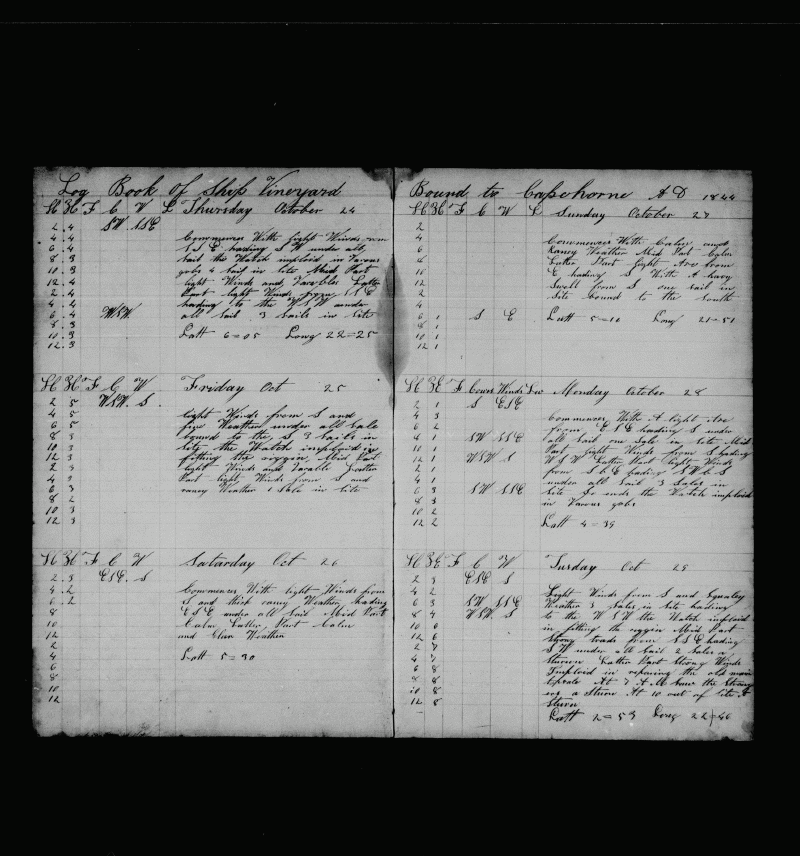 Log Book of Ship Vineyard
H K F C W L Thursday October 24
2 4 SW SSE
4 4 Commences With light Winds
6 4 SSE heading SW under all
8 3 sail the Watch imploid in Varous
10 3 gobs 4 sail in site Mid Part
12 4 light Winds and Varables Latter
2 4 Part light Winds from SSE
4 4 heading to the WSW under
6 4 WSW all Sail 3 Sails in Site
8 3
10 3 Latt 6=05 Long 22=25
12 3
H K F C W Friday Oct 25
2 5 WSW S
4 5 light Winds from S and
6 5 fine Weather under all Sale
8 3 bound to the S 3 Sails in
10 3 site the Watch imploid in
12 3 fitting the riggin Mid Part
2 3 light Winds and Varable Latter
4 3 Part light Winds from S and
6 3 raney Weather 1 Sale in Site
8 2
10 3
12 3
H K F C W Satarday Oct 26
2 3 ESE S
4 2 Commences With light Winds from
6 2 S and thick raney Weather heading
8 ESE under all Sail Mid Part
10 Calm Latter Part Calm
12 and Clear Weather
2
4 Latt 5=30
6
8
10
12
Bound to Capehorne AD 1844
H K F C W L Sunday October 27
2
4 Commences With Calm and
6 Raney Weather Mid Part Calm
8 Latter Part light Ares from
10 E heading S With A havy
12 Swell from S one sail in
2 Site bound to the South
4
6 1 S E Latt 5=10 Long 21=51
8 1
10 1
12 1
H K F Cours Winds Lw Monday October 28
2 1 S ESE
4 3 Commences With A light Are
6 2 from ESE heading S under
8 1 SW SSE all sail one Sale in Site Mid
10 1 Part light Winds from S heading
12 1 WSW S WSW Latter Part light Winds
2 1 from SSE heading SW b S
4 1 under all Sail 3 Sales in
6 3 SW SSE Site So ends the Watch imploid
8 3 in Varous gobs
10 2
12 2 Latt 4=39
H K F C W Tusday Oct 29
2 3 ESE S
4 2 Light Winds from S and Squaley
6 3 SW SSE Weather 3 Sales in Site heading
8 4 WSW S to the WSW the Watch imploid
10 6 in fitting the riggin Mid Part
12 6 Strong trads from SSE heading
2 7 SW under all Sail 2 Sales a
4 7 Sturn Latter Part Strong Winds
6 8 Imploid in reparing the old main
8 8 At 7 AM Saw the
10 8 a Sturn At 10 out of Site A
12 8 Sturn
Latt 2=53 Long 22=40